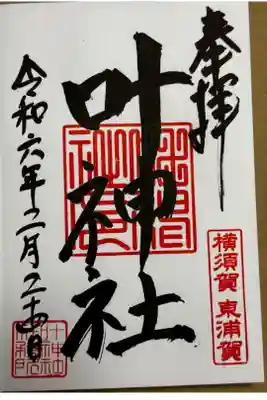 奉拝
横須賀 東浦賀
叶神社
令和六年二月二十四日